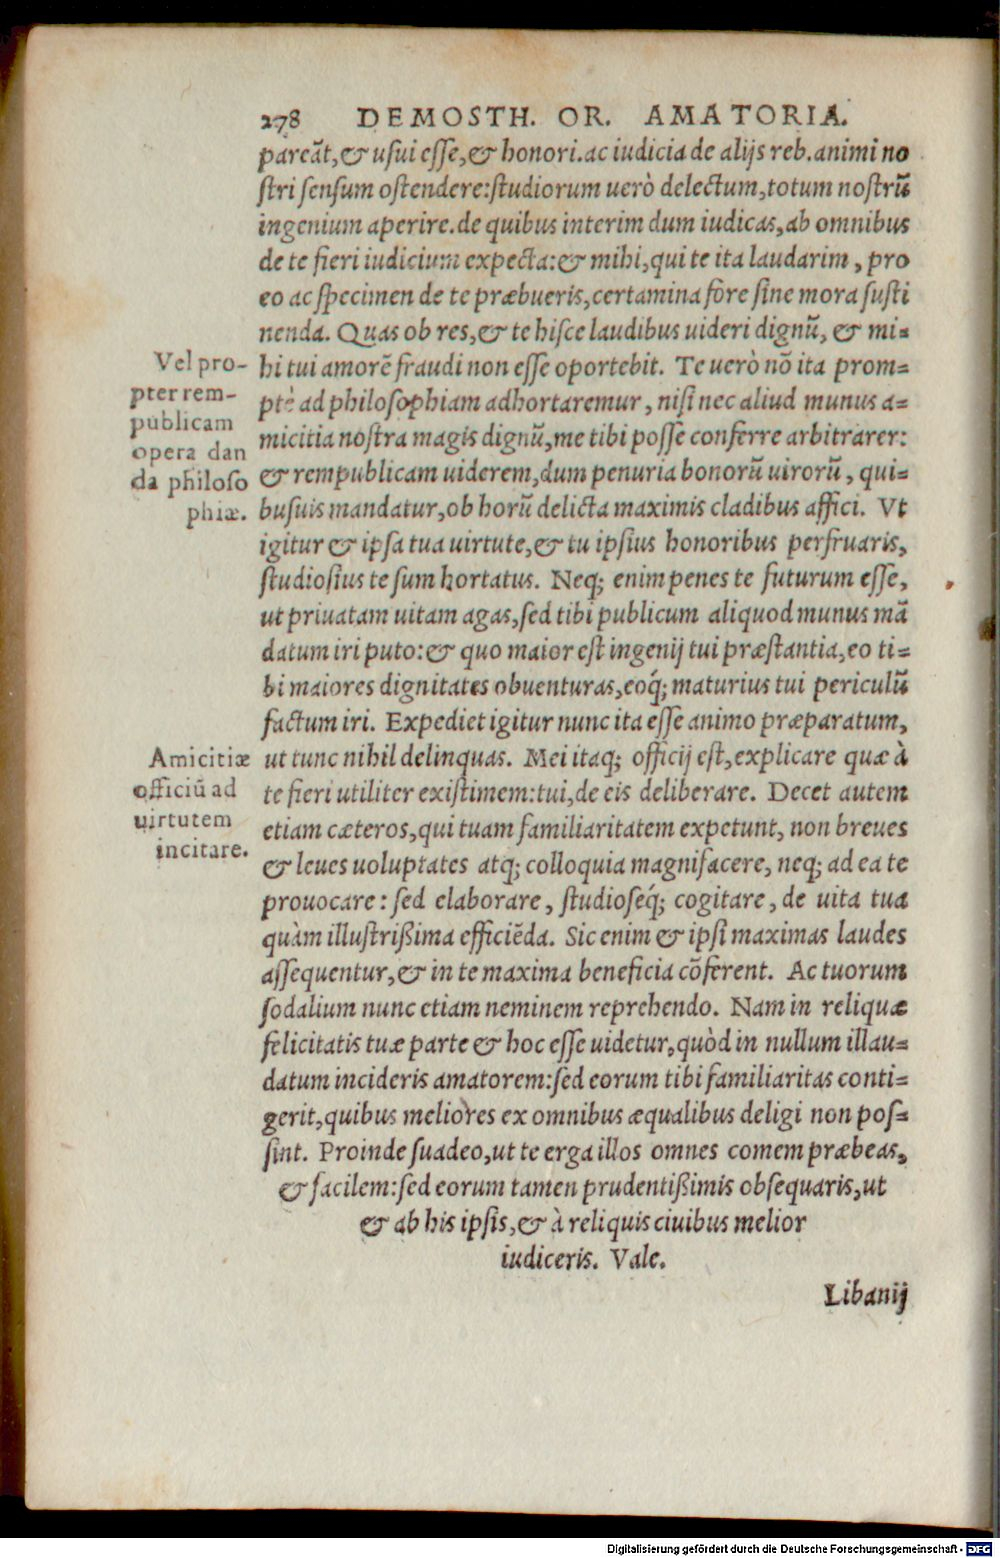 278 DEMOSTH. OR. AMATORIA.
pareãt, & usui esse, & honori. ac iudicia de alijs reb. animi no
stri sensum ostendere: studiorum uerò delectum, totum nostrũ
ingenium aperire. de quibus interim dum iudicas, ab omnibus
de te fieri iudicium expecta: & mihi, qui te ita laudarim, pro
eo ac specimen de te præbueris, certamina fore sine mora susti
nenda. Quas ob res, & te hisce laudibus uideri dignũ, & mi=
hi tui amorẽ fraudi non esse oportebit. Te uerò nõ ita prom=
ptè ad philosophiam adhortaremur, nisi nec aliud munus a=
micitia nostra magis dignũ, me tibi posse conferre arbitrarer:
& rempublicam uiderem, dum penuria bonorũ uirorũ, qui=
busuis mandatur, ob horũ delicta maximis cladibus affici. Vt
igitur & ipsa tua uirtute, & tu ipsius honoribus perfruaris,
studiosius te sum hortatus. Neq; enim penes te futurum esse,
ut priuatam uitam agas, sed tibi publicum aliquod munus mã
datum iri puto: & quo maior est ingenij tui præstantia, eo ti=
bi maiores dignitates obuenturas, eoq́; maturius tui periculũ
factum iri. Expediet igitur nunc ita esse animo præparatum,
ut tunc nihil delinquas. Mei itaq; officij est, explicare quæ à
te fieri utiliter existimem: tui, de eis deliberare. Decet autem
etiam cæteros, qui tuam familiaritatem expetunt, non breues
& leues uoluptates atq; colloquia magnifacere, neq; ad ea te
prouocare: sed elaborare, studioseq́; cogitare, de uita tua
quàm illustrißima efficiẽda. Sic enim & ipsi maximas laudes
assequentur, & in te maxima beneficia cõferent. Ac tuorum
sodalium nunc etiam neminem reprehendo. Nam in reliquæ
felicitatis tuæ parte & hoc esse uidetur, quòd in nullum illau=
datum incideris amatorem: sed eorum tibi familiaritas conti=
gerit, quibus meliores ex omnibus æqualibus deligi non pos=
sint. Proinde suadeo, ut te erga illos omnes comem præbeas,
& facilem: sed eorum tamen prudentißimis obsequaris, ut
& ab his ipsis, & à reliquis ciuibus melior
iudiceris. Vale.
Libanij
Vel pro-
pter rem-
publicam
opera dan
da philoso
phiæ.
Amicitiæ
officiũ ad
uirtutem
incitare.
Digitalisierung gefördert durch die Deutsche Forschungsgemeinschaft - DFG